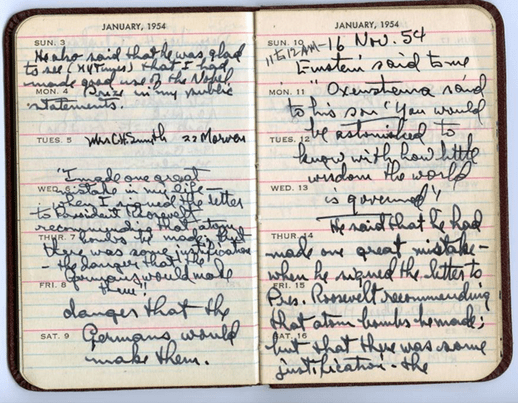 JANUARY, 1954
SUN. 3
He also said that he was glad
to see (NYTimes) that I had
made good use of the Nobel
MON. 4 Prize in my public
statements.
TUES. 5 Mrs CH Smyth 22 Morven
"I made one great
WED. 6 mistake in my life—
when I signed the letter
to President Roosevelt
recommending that atom
THUR. 7 bombs be made; but
there was some justification
- the danger that the
Germans would make
FRI. 8 them!"
danger that the
SAT. 9 Germans would
make them.
JANUARY, 1954
SUN. 10
11 to 12 AM - 16 Nov. 54
Einstein said to me
MON. 11 Oxenstierna said
to his son "You would
TUES. 12 be astonished to
know with how little
wisdom the world
WED. 13 is governed"
He said that he had
THUR. 14
made one great mistake -
when he signed the letter to
FRI. 15
Pres. Roosevelt recommending
that atom bombs be made;
SAT. 16
but that there was some
justification - the